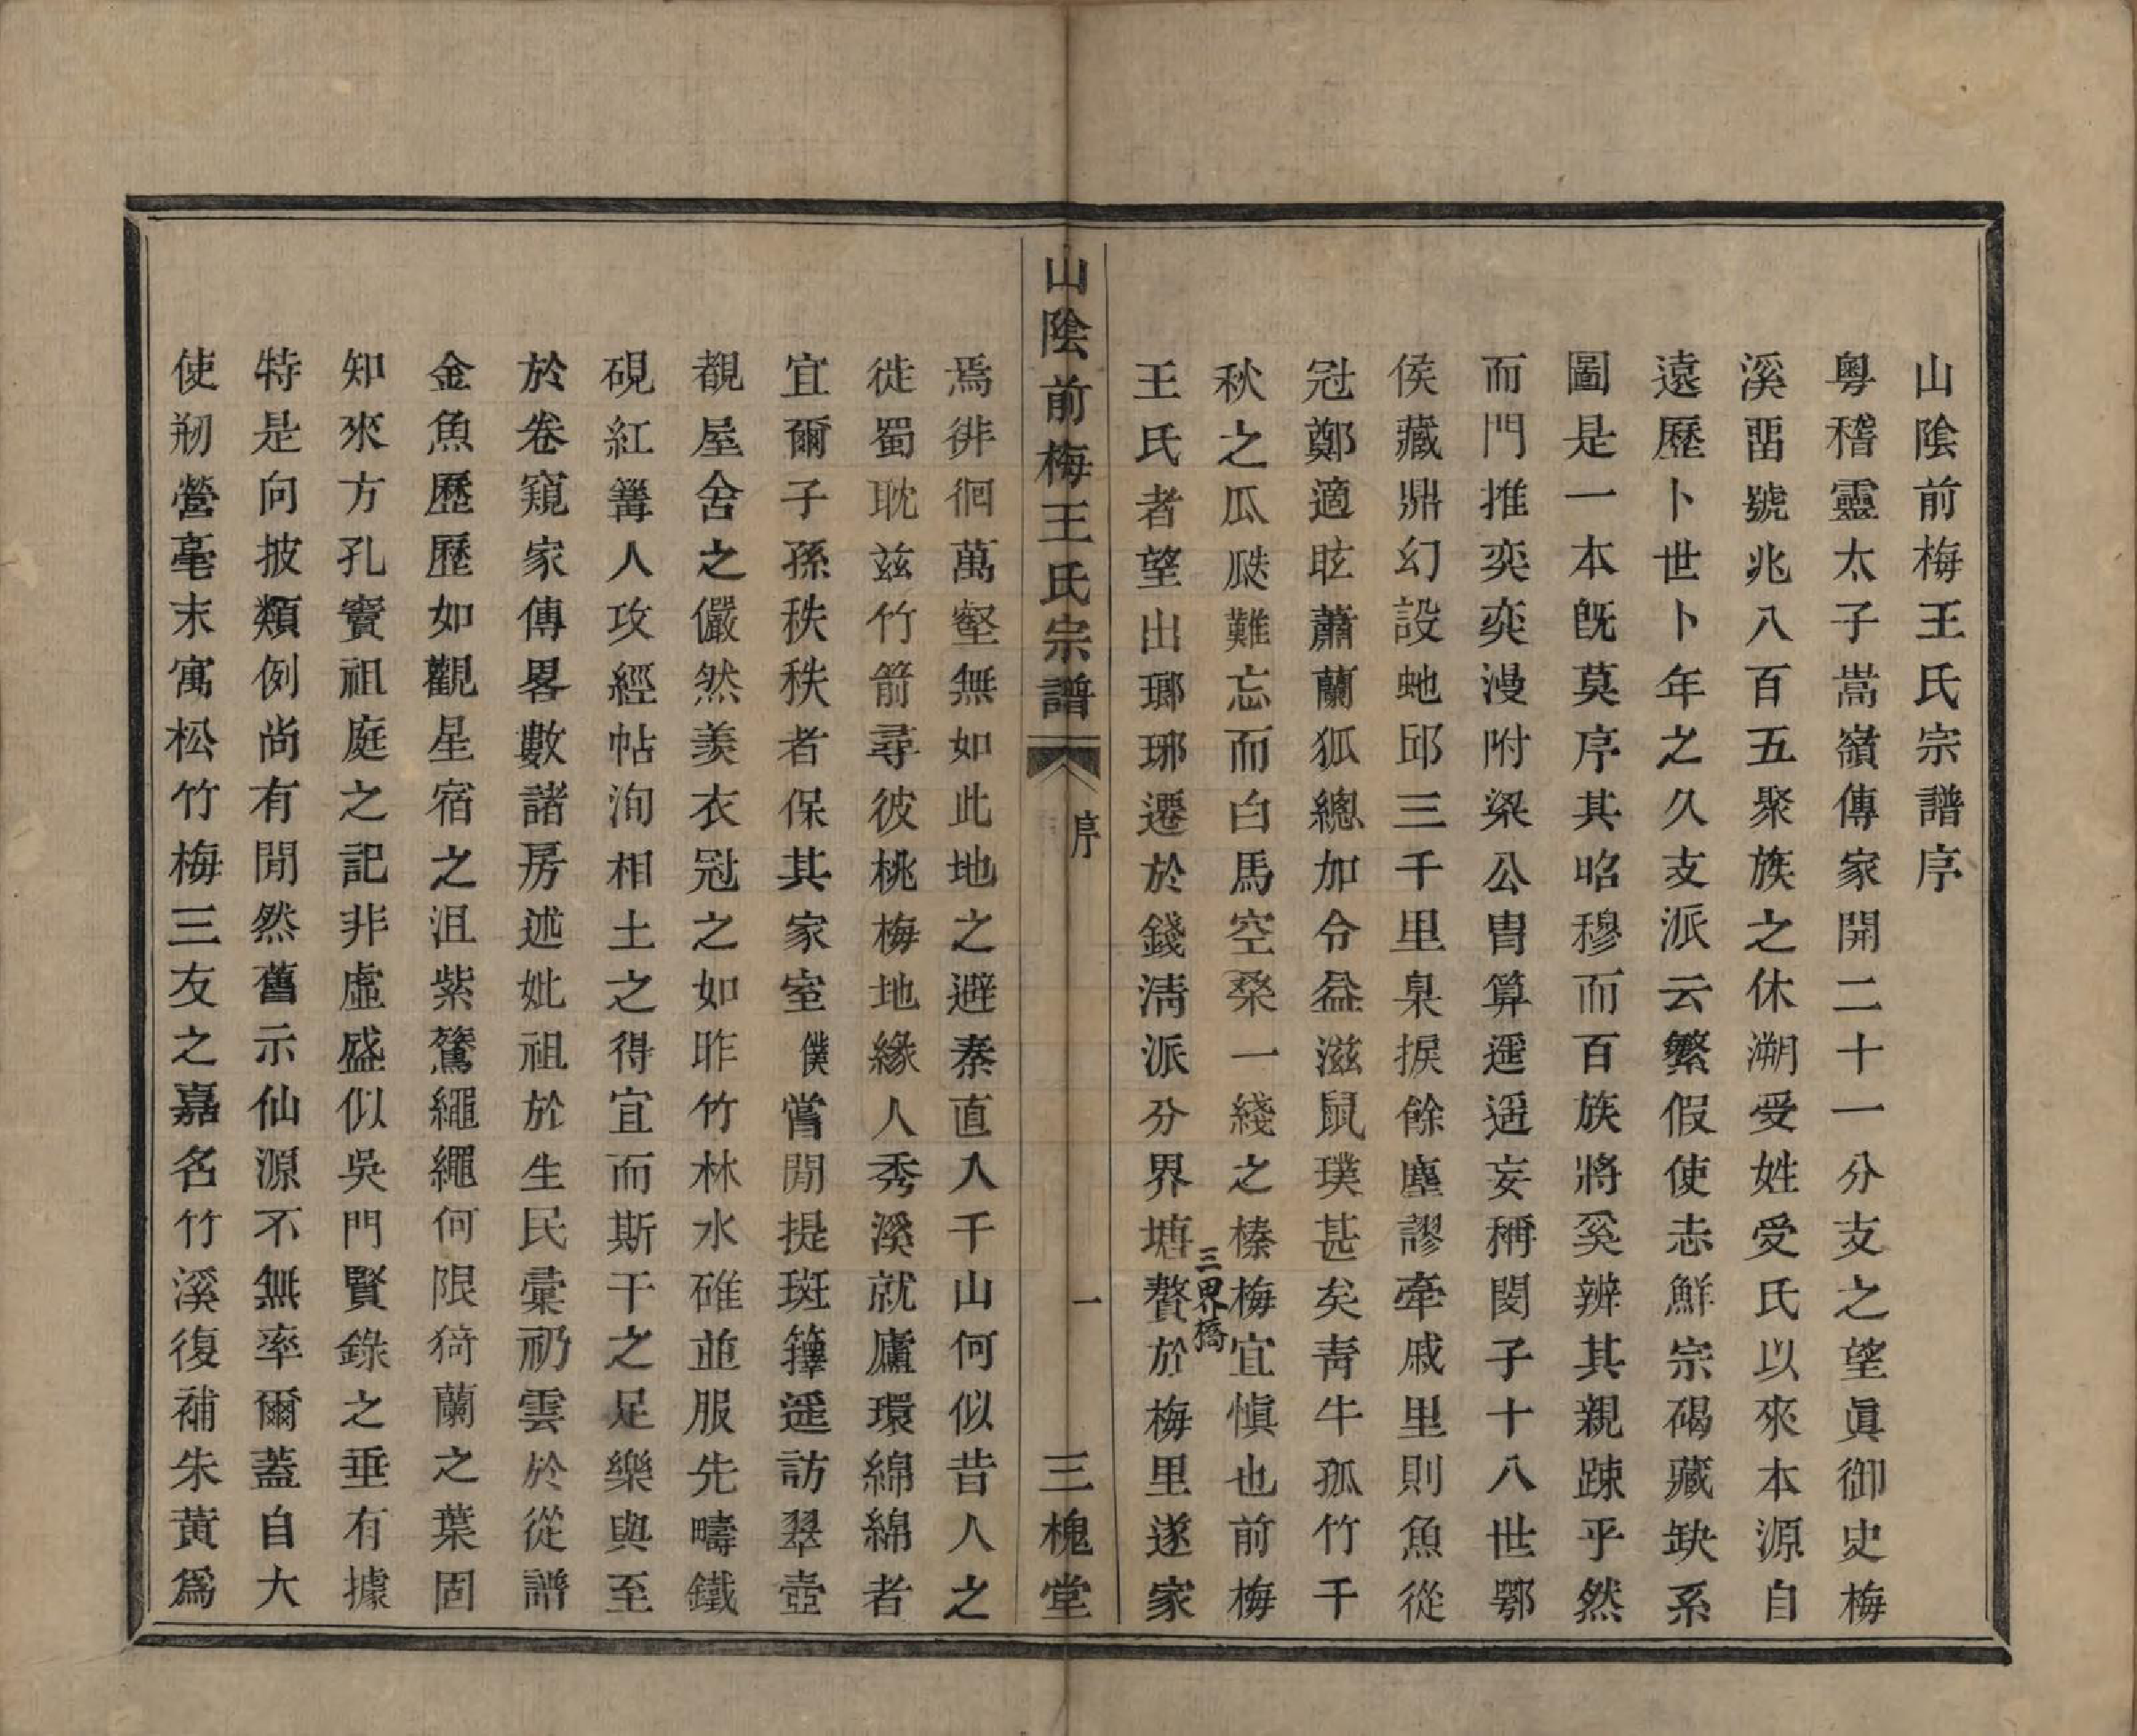 山陰前梅王氏宗譜序
粵稽靈太子嵩嶺傳家開二十一分支之望眞御史梅
溪畱號兆八百五聚族之休溯受姓受氏以來本源自
遠歷卜世卜年之久支派云繁假使志鮮宗碣藏缺系
圖是一本旣莫序其昭穆而百族將奚辨其親踈乎然
而門推奕奕漫附梁公冑算遥遥妄稱閔子十八世鄂
侯藏鼎幻設虵邱三千里臬捩餘塵謬牽戚里則魚從
冠鄭適眩蕭蘭狐總加令益滋鼠璞甚矣靑牛孤竹千
秋之瓜瓞難忘而白馬空桑一綫之榛梅宜愼也前梅
王氏者望出瑯琊遷於錢淸派分界塘贅於梅里遂家
三界橋
山陰前梅王氏宗譜 序 一 三槐堂
焉徘徊萬壑無如此地之避秦直入千山何似昔人之
徙蜀耽茲竹箭尋彼桃梅地緣人秀溪就廬環綿綿者
宜爾子孫秩秩者保其家室僕嘗閒提斑籜遥訪翠壺
覩屋舍之儼然羨衣冠之如昨竹林水碓並服先疇鐵
硯紅篝人攻經帖洵相土之得宜而斯干之足樂與至
於卷窺家傳畧數諸房述妣祖於生民彙礽雲於從譜
金魚歷歷如觀星宿之沮紫鷟繩繩何限猗蘭之葉固
知來方孔竇祖庭之記非虛盛似吳門賢錄之垂有據
特是向披類例尚有閒然舊示仙源不無率爾蓋自大
使剏營毫末寓松竹梅三友之嘉名竹溪復補朱黃爲